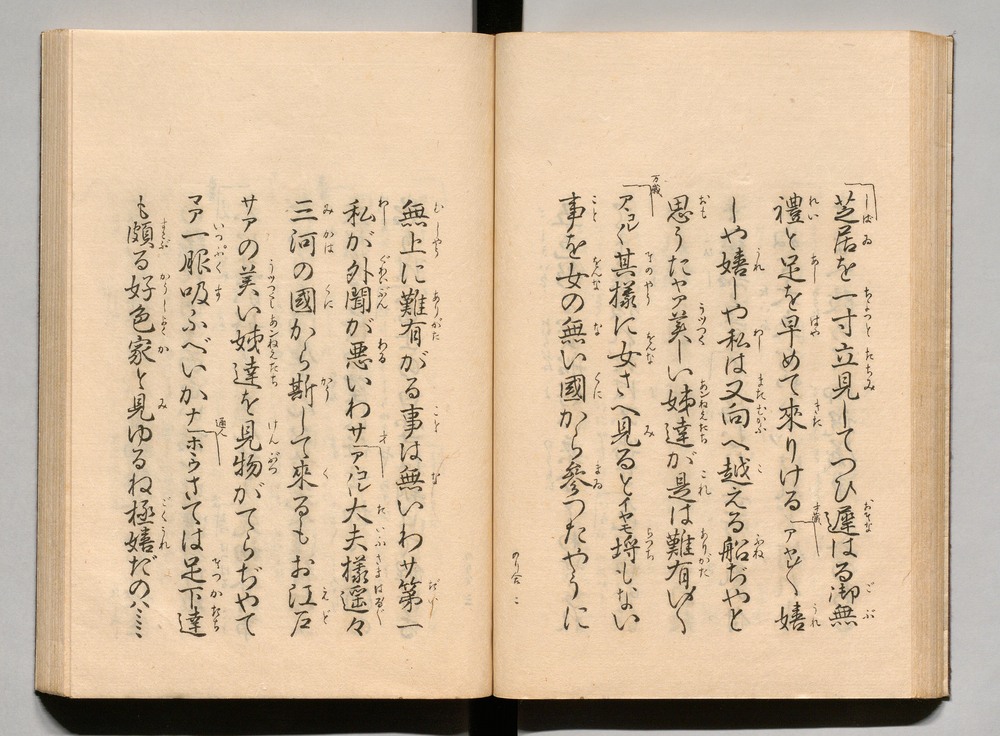 芝居を一寸立見してつひ遅はる御無
禮と足を早めて來りける「アヤ〳〵嬉
しや嬉しや私は又向へ越える船ぢやと
思うたヤア美しい姉達が是は難有い〳〵
「アコレ〳〵其樣に女さへ見るとイヤモ埒しない
事を女の無い國から參つたやうに
のり合 二
無上に難有がる事は無いわサ第一
私が外聞が悪いわサ「アコレ大夫樣遥々
三河の國から斯して來るもお江戸
サアの美い姉達を見物がてらぢやて
マア一服吸ふべいかナ「ホウさては足下達
も頗る好色家と見ゆるね極嬉だのハミミ